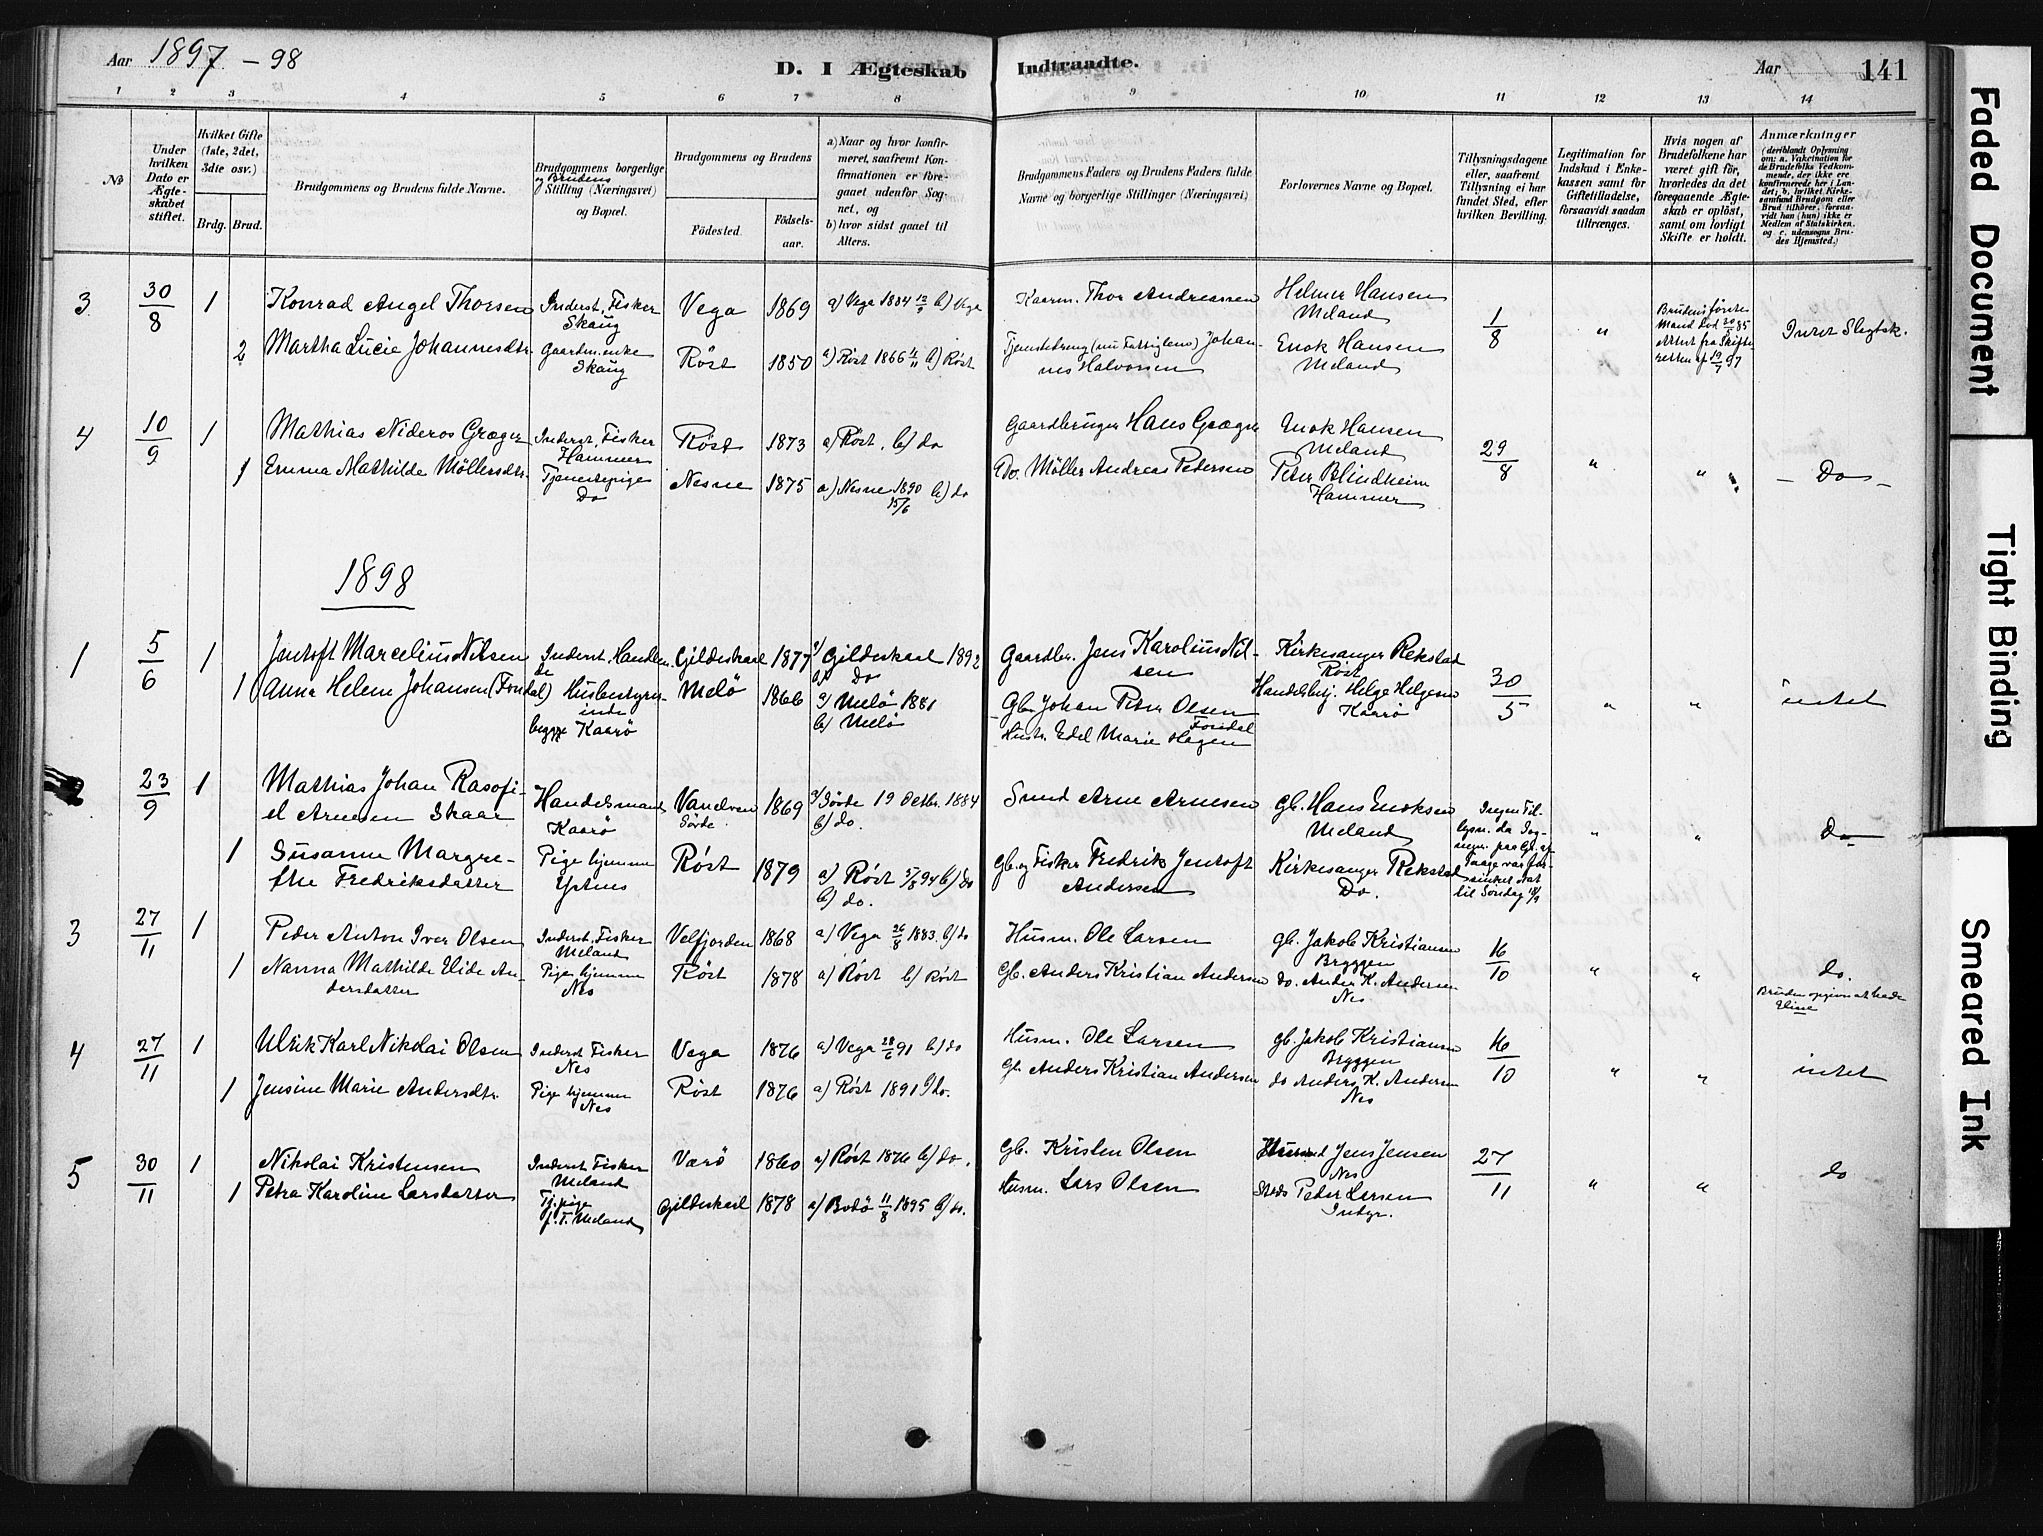 Aar 1897 – 98
D. I Ægteskab Indtraadte.
Aar 141
1 2 3 4 5 6 7 8 9 10 11 12 13 14
№
Under hvilken Dato er Ægteskabet stiftet.
Hvilket Gifte (1ste, 2det, 3die osv.)
Brdg. Brud.
Brudgommens og Brudens fulde Navne.
Brudgommens borgerlige og Brudens Stilling (Næringsvei) og Bopæl.
Brudgommens og Brudens
Fødested.
Fødsels-aar.
a) Naar og hvor konfir-
meret, saafremt Kon-
firmationen er fore-
gaaet udenfor Sog-
net, og
b) hvor sidst gaaet til
Alters.
Brudgommens Faders og Brudens Faders fulde
Navne og borgerlige Stillinger (Næringsvei)
Forlovernes Navne og Bopæl.
Tillysningsdagene
eller, saafremt
Tillysning ei har
fundet Sted, efter
hvilken Bevilling.
Legitimation for
Indskud i Enke-
kassen samt for
Giftetilladelse,
forsaavidt saadan
tiltrænges.
Hvis nogen af
Brudefolkene har
været gift før,
hvorledes da det
foregaaende Ægte-
skab er opløst,
samt om lovligt
Skifte er holdt.
Anmærkninger
(deriblandt Oplysning
om: a. Vakcination for
de Brudefolks Vedkom-
mende, der ikke ere
konfirmerede her i Lan-
det; b. hvilket Kirke-
samfund Brudgom eller
Brud tilhører, forsaa-
vidt han (hun) ikke er
Medlem af Statskirken,
og c. udensogns Bru-
des Hjemsted.)
3 30/8 1 Konrad Angel Thorsen Inderst, Fisker Skaug Vega 1869 a) Vega 1884 b) Vega Kaarm. Thor Andreassen Helmer Hansen Meland 1/8 " Brudens første Mand død Attest fra Skifteretten af 19/7 97 Intet Slegtsk.
2 Martha Lucie Johannesdtr. Gaardm. enke Skaug Røst 1850 a) Røst 1866 b) Røst Tjenestedreng (nu Fattiglem) Johannes Halvorsen Enok Hansen Meland
4 10/9 1 Mathias Nideros Græger Inderst, Fisker Hammer Røst 1873 a) Røst, b) do Gaardbruger Hans Græger Enok Hansen Meland 29/8 " " – Do –
1 Emma Mathilde Møllersdtr. Tjenestepige Do Nesne 1875 a) Nesne 1890 15/6 b) do Do. Møller Andreas Pedersen Peter Blindheim Hammer
1898
1 5/6 1 Jentoft Marcelius Nilsen Inderst, Handlende Gildeskaal 1877 a) Gildeskaal 1892 b) do Gaardbr. Jens Karolius Nilsen Kirkesanger Rekstad Røst 30/5 " " intet
1 Anna Helene Johansen (Fondal) Husbestyrerinde begge Kaarø Melø 1866 a) Melø 1881 b) Melø Gb. Johan Peter Olsen Fondal Hustr. Edel Marie Hagen Handelsbetj. Helge Helgesen Kaarø
23/9 1 Mathias Johan Rasofiel Arnesen Skaar Handelsmand Kaarø Vandven Sørde 1869 a) Sørde 19 Octbr. 1884 b) do. Smed Arne Arnesen Gb. Hans Enoksen Meland Ingen Tillysn. da til Søndag 18/9 " " Do
1 Susanne Margrethe Fredriksdatter Pige hjemme Ystnes Røst 1879 a) Røst 94 b) do b) do. Gb. og Fisker Fredrik Jentoft Andersen Kirkesanger Rekstad Do.
3 27/11 1 Peder Anton Iver Olsen Inderst, Fisker Meland Velfjorden 1868 a) Vega 26/8 1883 b) do Husm. Ole Larsen gb. Jakob Kristiansen Bryggen 16/10 " " do.
1 Nanna Mathilde Elide Andersdatter Pige hjemme Nes Røst 1878 a) Røst b) Røst Gb. Anders Kristian Andersen do. Anders K. Andersen Nes Bruden opgives at hede Eline
4 27/11 1 Ulrik Karl Nikolai Olsen Inderst Fisker Nes Vega 1876 a) Vega 28/6 91 b) do Husm. Ole Larsen gb. Jakob Kristiansen Bryggen 16/10 " " intet
1 Jensine Marie Andersdtr. Pige hjemme Nes Røst 1876 a) Røst 1891 b) do. Gb. Anders Kristian Andersen do Anders K. Andersen Nes
5 30/11 1 Nikolai Kristensen Inderst Fisker Meland Værø 1860 a) Røst 1876 b) do. Gb. Kristen Olsen Jens Jensen Nes 27/11 " " do
1 Petra Karoline Larsdatter Tj. pige f. T. Meland Gildeskaal 1878 a) Bodø 11/8 1895 b) do. Husm. Lars Olsen Peder Larsen Indyr.
Faded Document
Tight Binding
Smeared Ink